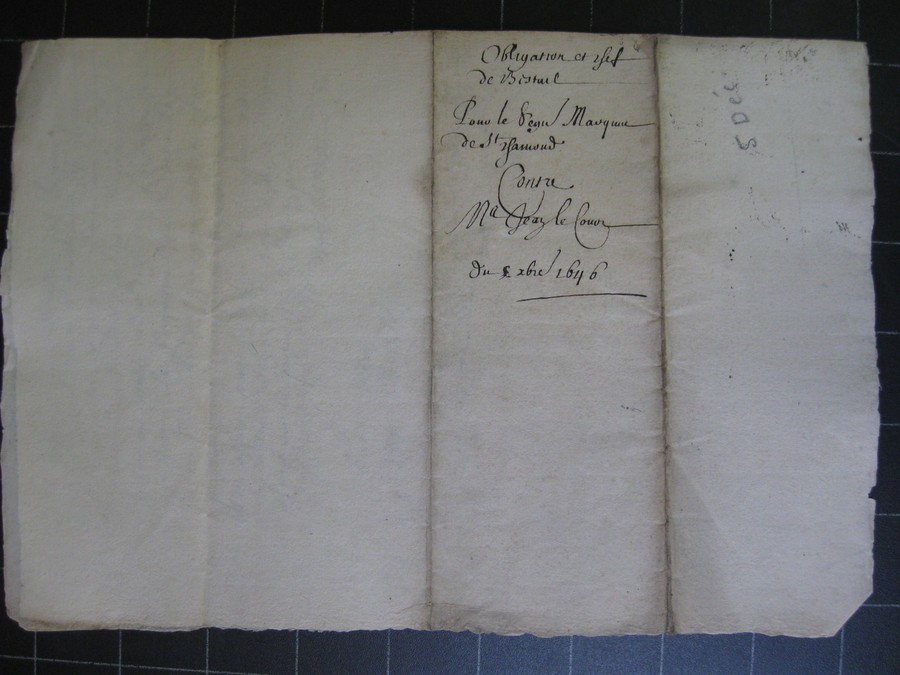 Obligation et
de Bestail
Pour le Seigr Marquis
de St chamond
Contre
Me Jean le Couvr
Du 5 xbre 1646
5 Déc